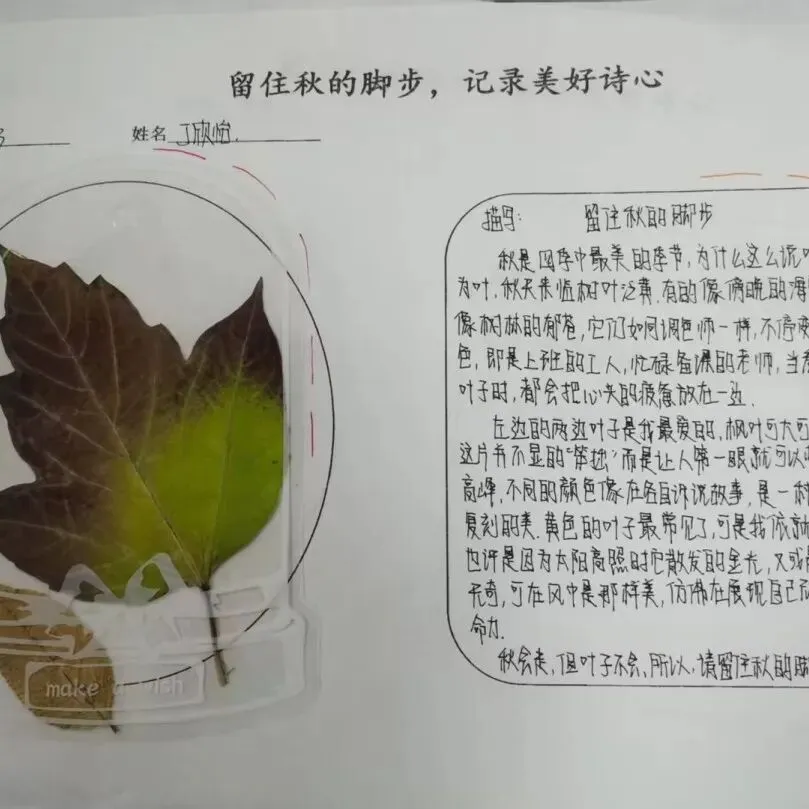 留住秋的脚步，记录美好诗心
姓名 丁欣怡.
描写: 留住秋的脚步
秋是四季中最美的季节,为什么这么说
为叶,秋天来临树叶泛黄.有的像傍晚的
像树林的郁苍,它们如同调色师一样,不停
色,即是上班的工人,忙碌备课的老师,当
叶子时,都会把心头的疲惫放在一边.
左边的两边叶子是我最爱的,枫叶可大可
这片并不显的"笨拙"而是让人第一眼就可以
高峰,不同的颜色像在各自诉说故事,是一种
复刻的美.黄色的叶子最常见了,可是我依就
也许是因为太阳高照时它散发的金光,又或
无奇,可在风中是那样美,仿佛在展现自己
命力.
秋会走,但叶子不会,所以,请留住秋的脚
make a wish